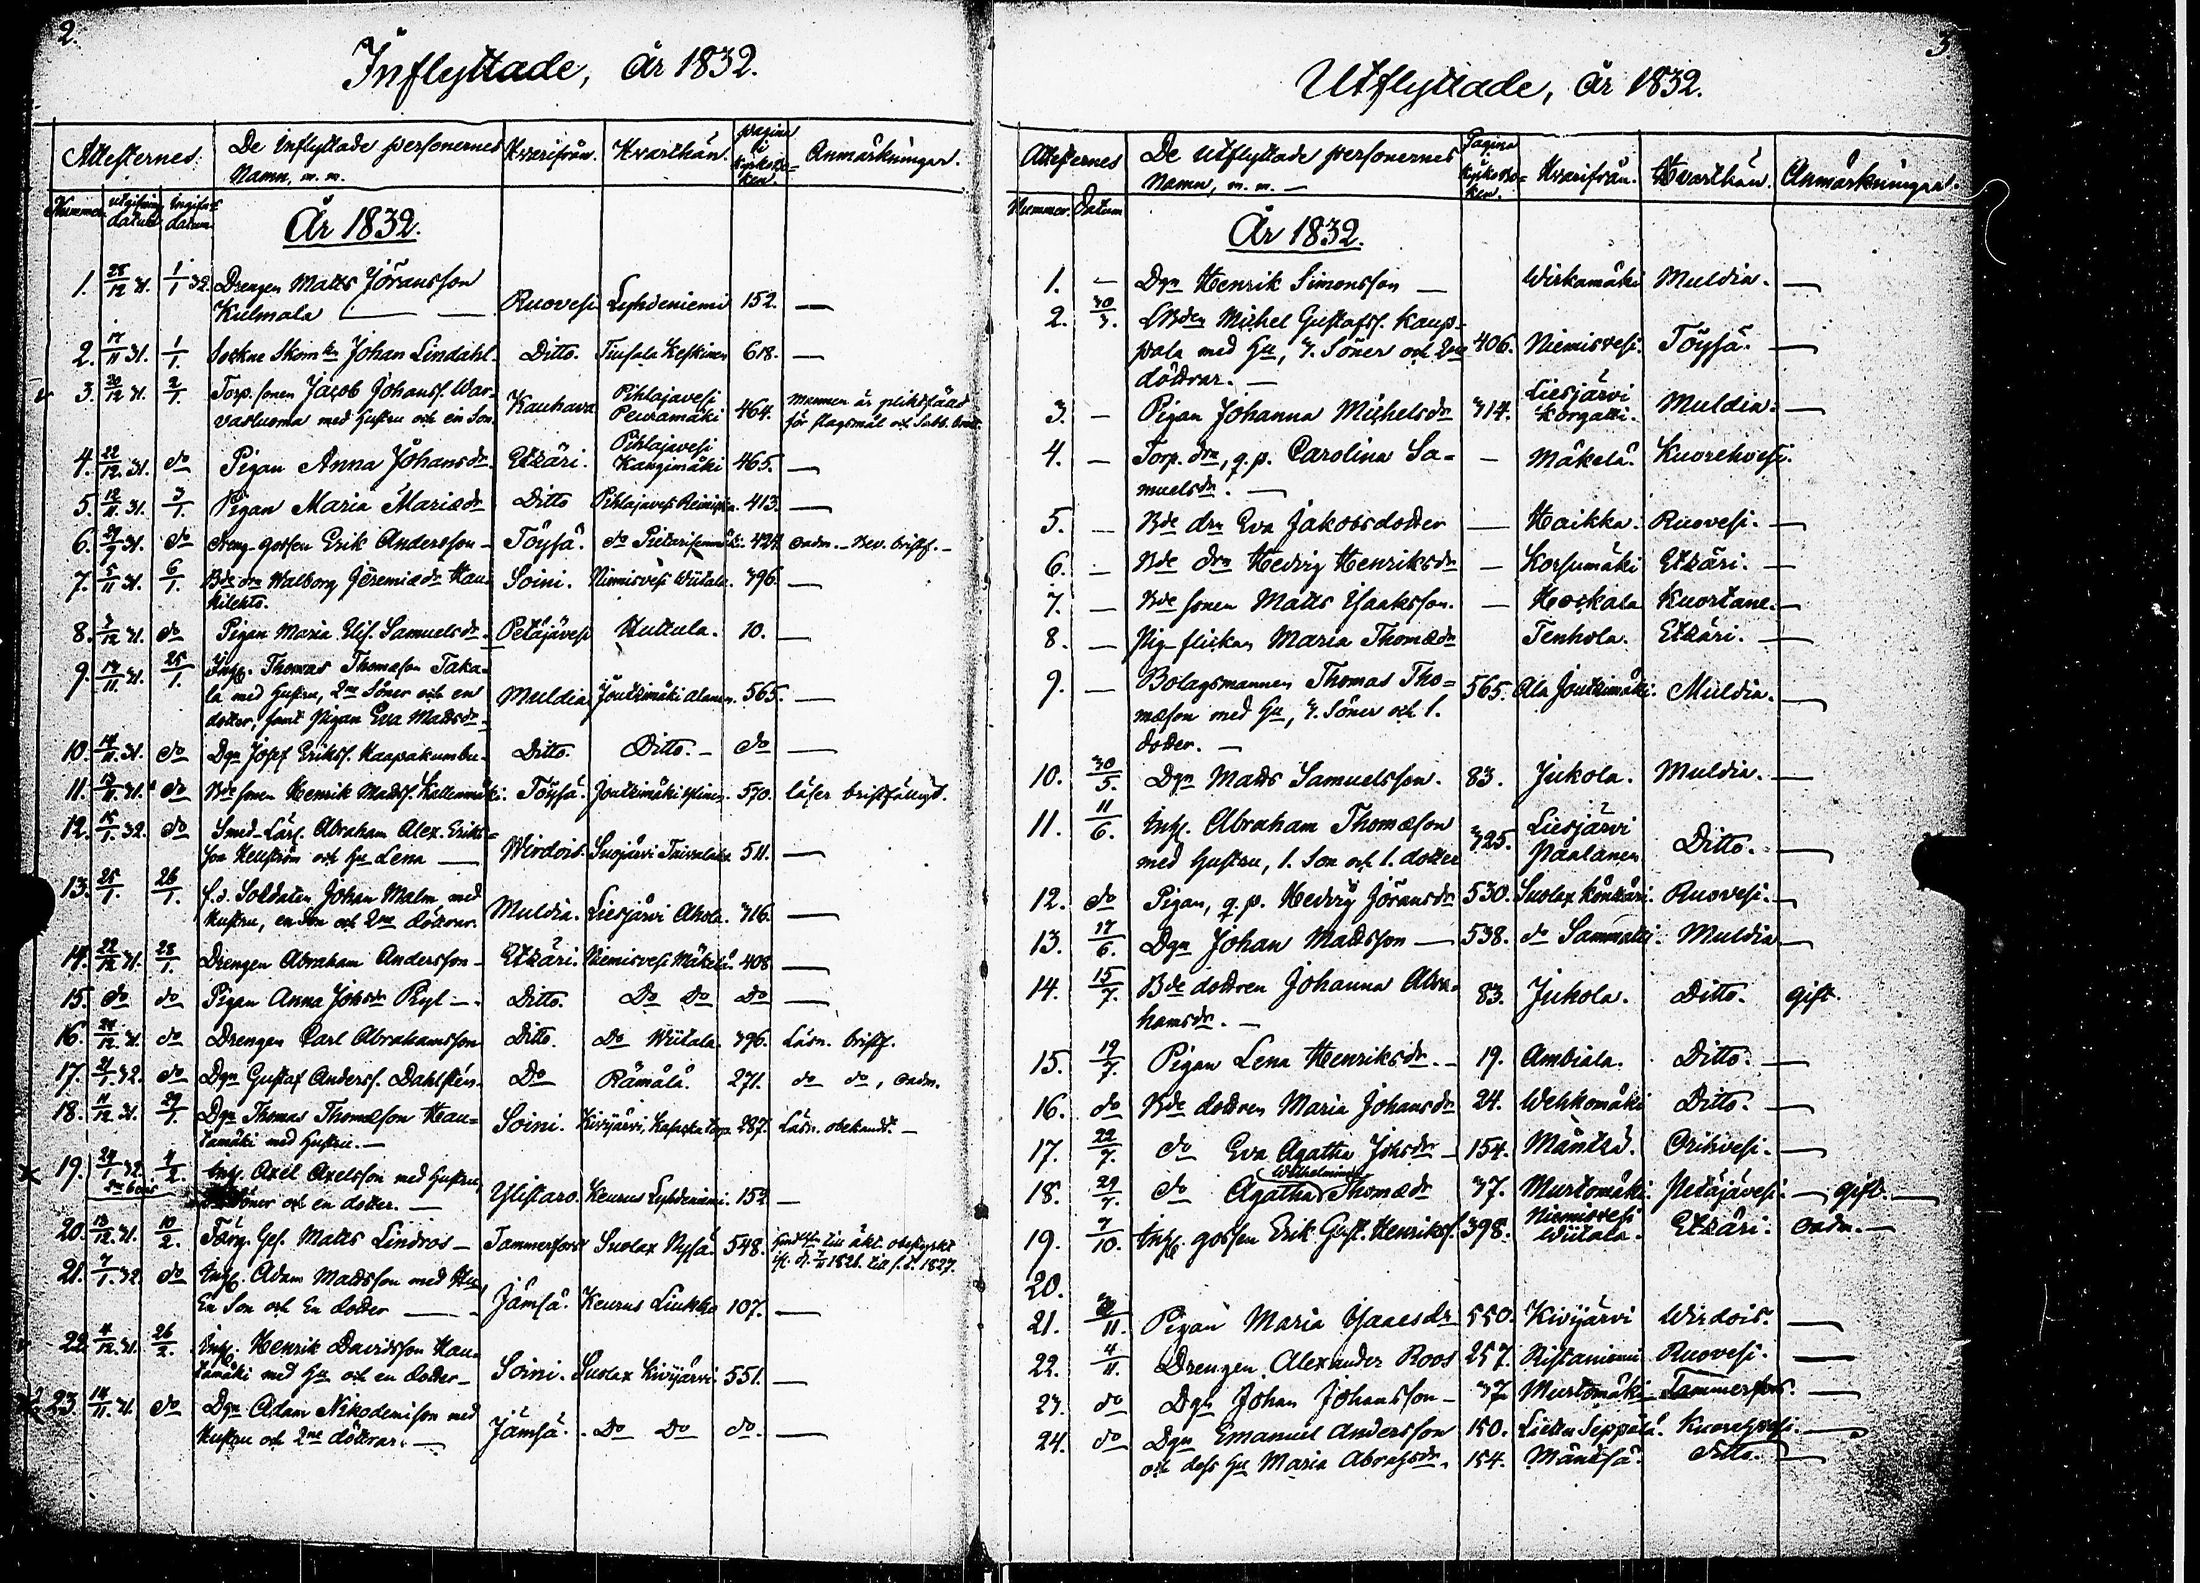 2.
Inflyttade, år 1832.
Attesternes
De inflyttade personernes Namn, m. m.
Hvarifrån.
Hvarthän.
pagina i kyrkobo=ken.
Anmärkningar.
Nummer
utgifning datum
ingifvet datum
År 1832.
1. 28/12 31. 1/1 32. Drengen Matts Jöransson
Kulmala — Ruovesi Lyhdeniemi 152. —
2. 17/11 31. 1/1. Sockne Skom Johan Lindahl. Ditto. Tiusala Keskinen 618. —
3. 20/12 31. 2/1. Torp. sonen Jacob Johanss. War=
vasluoma med hustru och en Son. Kauhava Pihlajavesi Peuramäki 464. mannen är pliktfäld
för slagsmål och Sabb. brott.
4. 22/12 31. do Pigan Anna Johansdr. Etzäri. Pihlajavesi Kangimäki 465. —
5. 12/11 31. 3/1. Pigan Maria Mariædr Ditto Pihlajavesi 413. —
6. 29/9 31. do dreng-gossen Erik Andersson — Töysä. do 424. oadm. — Bev. bristf. —
7. 5/11 31. 6/1. Bde drn Walborg Jeremiædr Hau=
kilehto. Soini. Niemisvesi Wiitala. 396. —
8. 3/12 31. do Pigan Maria Elis. Samuelsdr. Petäjävesi Huttula. 10. —
9. 14/11 31. 25/1. Inh. Thomas Thomæson Taka=
la med hustru, 2ne Söner och en
dotter, samt Pigan Eva Mattsdr. Muldia Joutzimäki alanen. 565. —
10. 14/11 31. do Dgn Josef Erikss. Haapakumbu. Ditto. Ditto. — do —
11. 13/11 31. do Bde sonen Henrik Matts. Kallenmäki. Töysä. Joutzimäki 570. läser bristfälligt.
12. 15/1 32. do Smed-Lärl. Abraham Alex. Eriks=
son Hellström och Hu Lena — Wirdois. Suojärvi Taivalaho 511. —
13. 25/1. 26/1. f.d. Soldaten Johan Malm, med
hustru, en Son och 2ne döttrar. Muldia. Liesjärvi Ahola. 316. —
14. 22/12 31. 28/1. Drengen Abraham Andersson — Etzäri. Niemisvesi Mäkelä. 408 —
15. do do Pigan Anna Johsdr Ryl — Ditto. Do do do —
16. 28/12 31. do Drengen Carl Abrahamsson Ditto. Do Wiitala 396. Läsn. bristf.
17. 21/1 32. do Dgn Gustaf Anderss. Dahlstén. Do Rämälä. 271. do do, oadm.
18. 11/12 31. 29/1. Dgn Thomas Thomæson Hau=
tamäki med Hustru. — Soini. Kivijärvi, torp. 287. Läsn. obekandt. —
19. 24/1 32. 4/2. Inh. Axel Axelsson med hustru,
Söner och en dotter. — Ylistaro. Keurus Lyhdeniemi. 152 —
20. 13/12 31. 10/2. Färg. Ges. Matts Lindros — Tammerfors Suolax Nysä 548.
1826. till 1827.
21. 7/1 32. do Inh. Adam Mattsson med Hu,
En Son och En dotter — Jämsä. Keurus Liukko 107. —
22. 4/12 31. 26/2. Inh. Henrik Davidsson Hau=
tamäki med Hu och en dotter — Soini. Suolax Kivijärvi 551. —
23. 14/11 31. do Dgn Adam Nikodemison med
Hustru och 2ne döttrar. — Jämsä. Do Do do. —
3
Utflyttade, år 1832.
Attesternes
De utflyttade personernes Namn, m. m. —
Pagina i kyrkobo=ken.
Hvarifrån.
Hvarthän.
Anmärkningar.
Nummer. Datum
År 1832.
1. — Dgn Henrik Simonsson — Wirkamäki Muldia. —
2. 30/3. Michel Gustafss. Kaup=
pala med Hu, 3. Söner och 2ne
döttrar. — 406. Niemisvesi. Töysä. —
3. — Pigan Johanna Michelsdr 314. Liesjärvi Korgatti. Muldia. —
4. — Torp. drn, q.p. Carolina Sa=
muelsdr. — — Mäkelä. Kuorehvesi.
5. — Bde drn Eva Jakobsdotter — Haikka. Ruovesi. —
6. — Bde drn Hedvig Henriksdr — Korsumäki Etzäri. —
7. — Bde sonen Matts Isaaksson. — Hoskala Kuortane. —
8 — Pig-flickan Maria Thomædr Tenhola. Etzäri. —
9. — Bolagsmannen Thomas Tho=
mæson med Hu, 3. Söner och 1.
dotter. — 565. Ala Joutzimäki. Muldia. —
10. 30/5. Dgn Matts Samuelsson. 83. Jukola. Muldia. —
11. 11/6. Inh. Abraham Thomæson
med hustru, 1. Son och 1. dotter 325. Liesjärvi Paalanen Ditto. —
12. do Pigan, q.p. Hedvig Jöransdr 530. Suolax Ruovesi. —
13. 17/6. Dgn Johan Mattsson — 538. do Sammatti. Muldia —
14. 15/7. Bde dottren Johanna Abra=
hamsdr. — 83. Jukola. Ditto. gift.
15. 19/7. Pigan Lena Henriksdr. — 19. Ambiala. Ditto. —
16. do Bde dottren Maria Johansdr 24. Wehkomäki Ditto. —
17. 22/7. do Eva Agatha Johsdr — 154. Mänttä. Orihvesi. —
Wilhelmina
18. 29/7. do Agatha Thomædr 37. Murtomäki. Petäjävesi. — gift. —
19. 7/10. Inh. gossen Erik Gust. Henrikss. 398. Niemisvesi Wiitala. Etzäri. oadm. —
20.
21. /11. Pigan Maria Isaacsdr 550. Kivijärvi Wirdois. —
22. 4/11. Drengen Alexander Roos 257. Ristaniemi Ruovesi. —
23. do Dgn Johan Johansson — 37 Murtomäki Tammerfors. —
24. do Dgn Emanuel Andersson 150. Seppälä. Kuorehvesi. —
och dess Hu Maria Abrahsdr. 154. Mänttä. Ditto. —